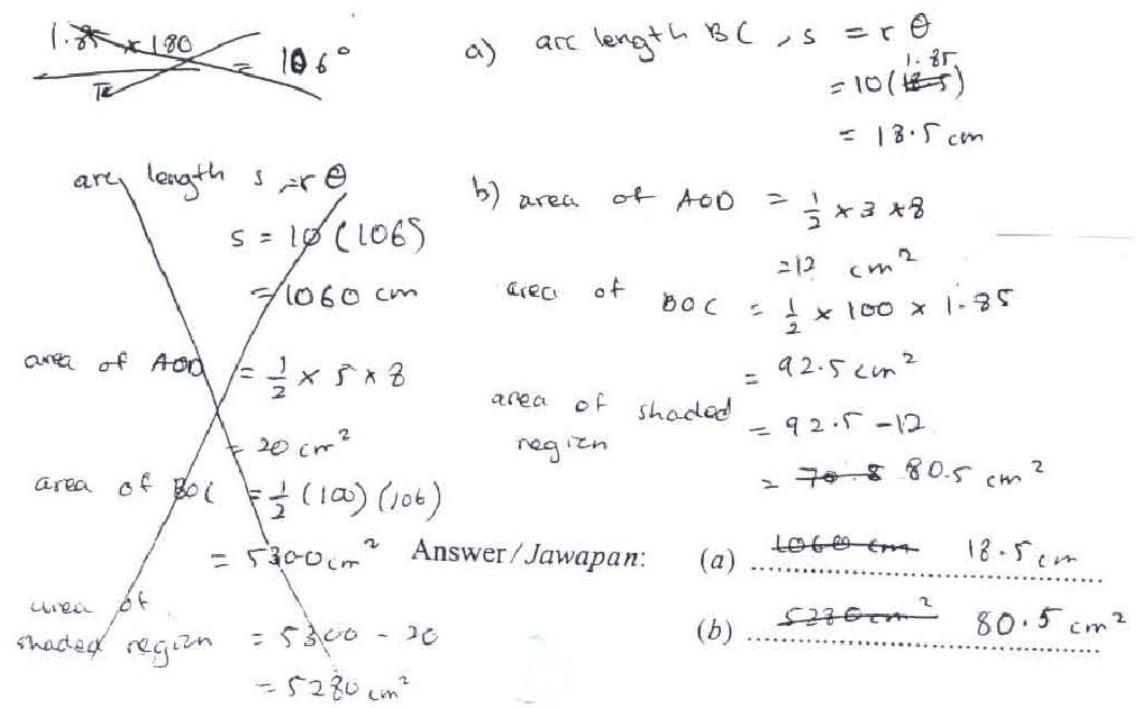 1.85 × 180 = 106°
π
arc length s = rθ
s = 10 (106)
= 1060 cm
area of AOD = 1/2 × 5 × 8
= 20 cm²
area of BOC = 1/2 (100) (106)
= 5300 cm²
area of
shaded region = 5300 - 20
= 5280 cm²
a) arc length BC , s = rθ
1.85
= 10 (18.5)
= 18.5 cm
b) area of AOD = 1/2 × 3 × 8
= 12 cm²
area of BOC = 1/2 × 100 × 1.85
= 92.5 cm²
area of shaded = 92.5 - 12
region
= 70.8 80.5 cm²
Answer/Jawapan: (a) 1060 cm 18.5 cm
(b) 5280 cm² 80.5 cm²